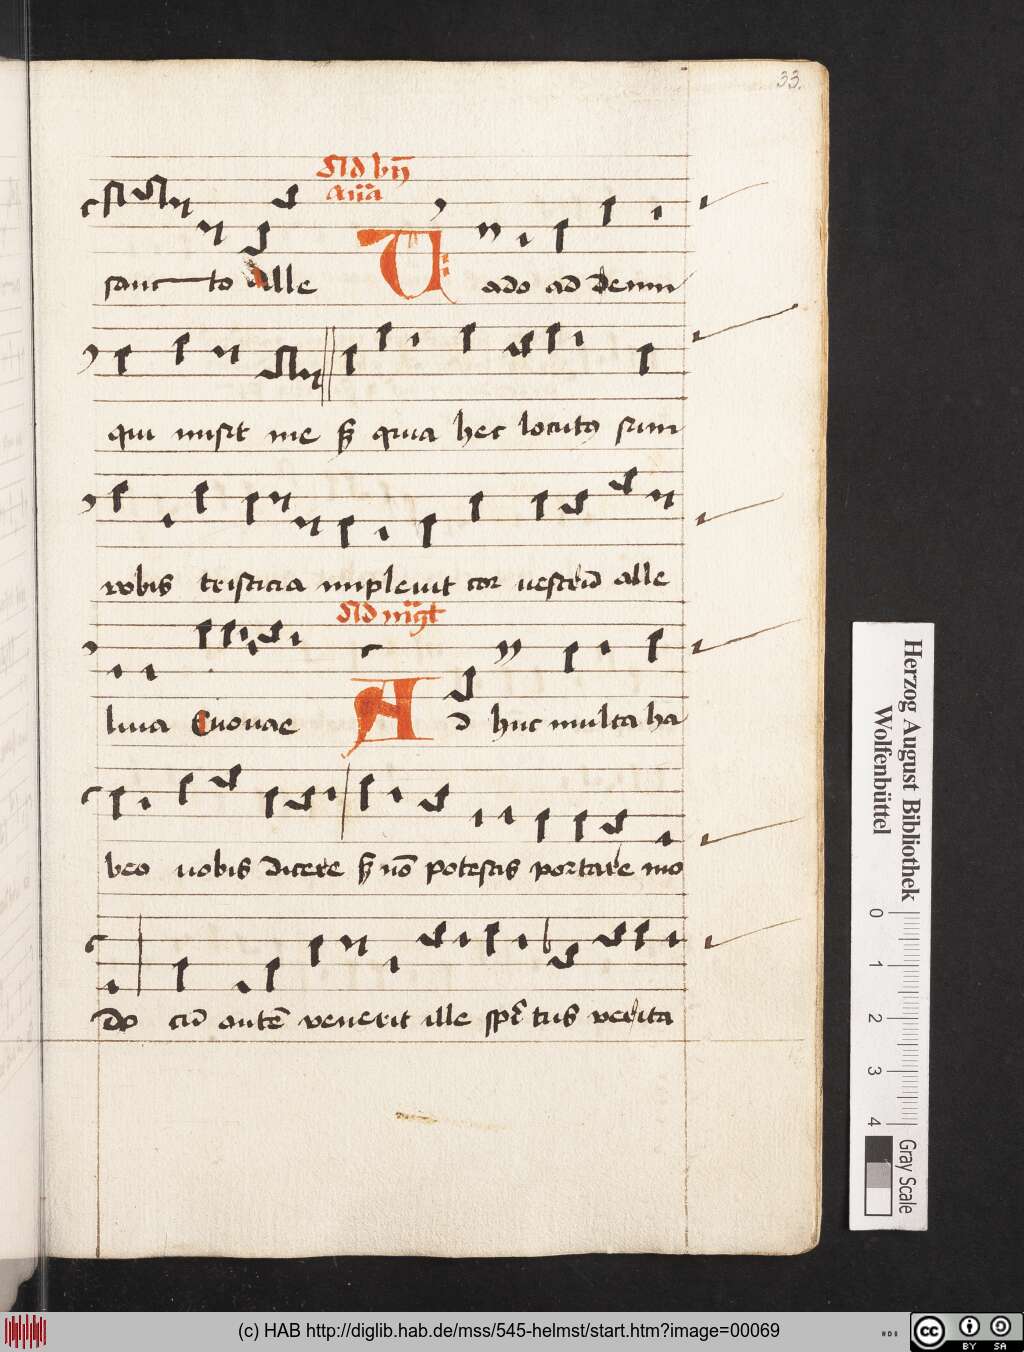 33.
Ad bn̄
Aña
sancto Alle Vado ad deum
qui misit me sꝫ quia hec locutꝰ sum
vobis tristicia impleuit cor vestrū alle
Ad mgt
luia Euouae Ad huc multa ha
beo uobis dicere sꝫ nō potestis portare mo
do cū autē venerit ille spr̄tus verita
Herzog August Bibliothek
Wolfenbüttel
0 1 2 3 4
Gray Scale
(c) HAB http://diglib.hab.de/mss/545-helmst/start.htm?image=00069
cc BY SA